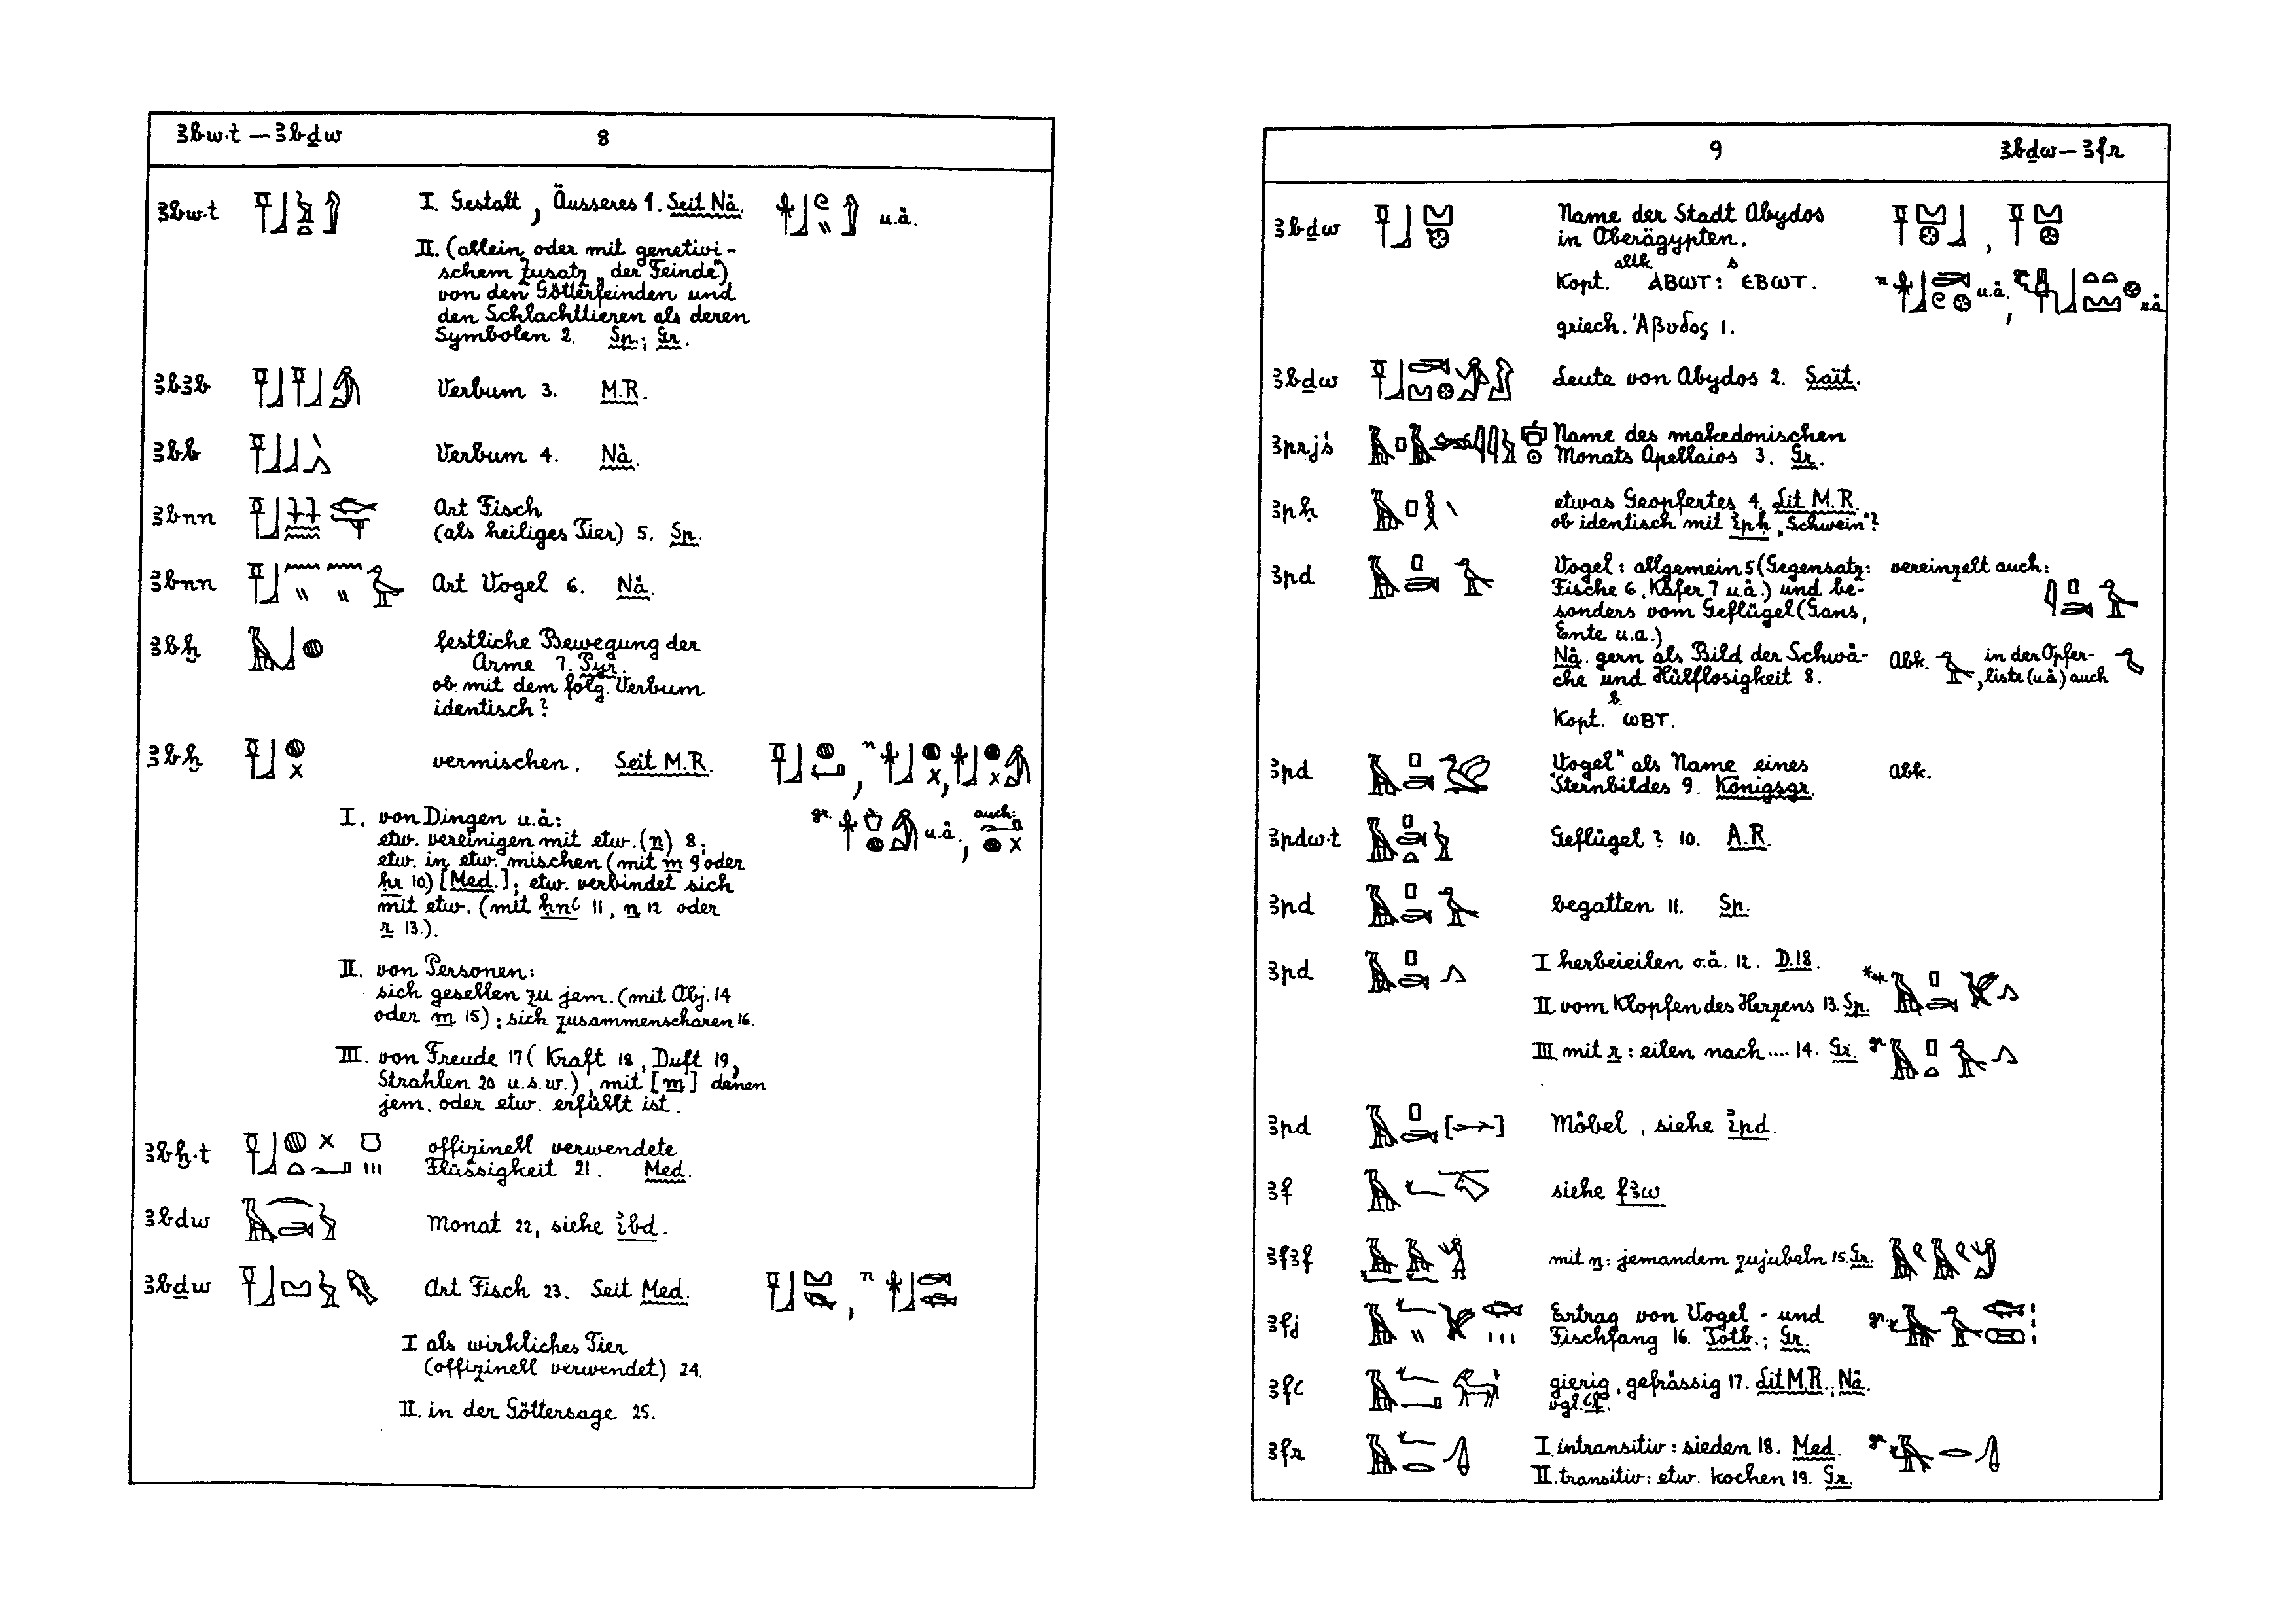 ꜣbw.t — ꜣbḏw
8
ꜣbw.t I. Gestalt, Äusseres 1. Seit Nä. u.ä.
II. (allein oder mit genetivi-
schem Zusatz „der Feinde")
von den Götterfeinden und
den Schlachttieren als deren
Symbolen 2. Sp.; Gr.
ꜣbꜣb Verbum 3. M.R.
ꜣbb Verbum 4. Nä.
ꜣbnn Art Fisch
(als heiliges Tier) 5. Sp.
ꜣbnn Art Vogel 6. Nä.
ꜣbẖ festliche Bewegung der
Arme 7. Pyr.
ob mit dem folg. Verbum
identisch?
ꜣbẖ vermischen. Seit M.R. , n ,
I. von Dingen u.ä: gr. u.ä., auch:
etw. vereinigen mit etw. (n) 8;
etw. in etw. mischen (mit m 9 oder
ḥr 10) [Med.]; etw. verbindet sich
mit etw. (mit ḥnꜥ 11, n 12 oder
r 13.).
II. von Personen:
sich gesellen zu jem. (mit Obj. 14
oder m 15); sich zusammenscharen 16.
III. von Freude 17 (Kraft 18, Duft 19,
Strahlen 20 u.s.w.), mit [m] denen
jem. oder etw. erfüllt ist.
ꜣbẖ.t offizinell verwendete
Flüssigkeit 21. Med.
ꜣbdw Monat 22, siehe ꞽbd.
ꜣbḏw Art Fisch 23. Seit Med. , n
I als wirkliches Tier
(offizinell verwendet) 24.
II. in der Göttersage 25.
9
ꜣbḏw — ꜣfr
ꜣbḏw Name der Stadt Abydos
in Oberägypten. ,
altk. s
Kopt. ⲀⲂⲰⲦ: ⲈⲂⲰⲦ. n u.ä., gr. u.ä.
griech. Ἀβυδος 1.
ꜣbḏw Leute von Abydos 2. Sait.
ꜣprjś Name des makedonischen
Monats Apellaios 3. Gr.
ꜣpḥ etwas Geopfertes 4. Lit M.R.
ob identisch mit ꞽpḥ „Schwein"?
ꜣpd Vogel: allgemein 5 (Gegensatz: vereinzelt auch:
Fische 6, Käfer 7 u.ä.) und be-
sonders vom Geflügel (Gans,
Ente u.a.)
Nä. gern als Bild der Schwä- Abk. , in der Opfer-
che und Hülflosigkeit 8. liste (u.ä.) auch
b.
Kopt. ⲰⲂⲦ.
ꜣpd Vogel" als Name eines Abk.
Sternbildes 9. Königsgr.
ꜣpdw.t Geflügel? 10. A.R.
ꜣpd begatten 11. Sp.
ꜣpd I herbeieilen o.ä. 12. D.18.
II vom Klopfen des Herzens 13. Sp.
III mit r: eilen nach .... 14. Gr. gr.
ꜣpd Möbel, siehe ꞽpd.
ꜣf siehe fꜣw
ꜣfꜣf mit n: jemandem zujubeln 15. Gr.
ꜣfj Ertrag von Vogel- und gr.
Fischfang 16. Totb.; Gr.
ꜣfꜥ gierig, gefrässig 17. Lit M.R.; Nä.
vgl. ꜥf.
ꜣfr I. intransitiv: sieden 18. Med. gr.
II. transitiv: etw. kochen 19. Gr.